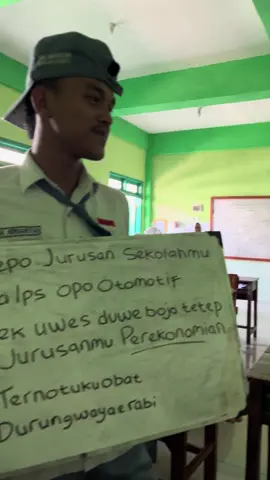 epo Jurusan Sekolahmu
alps opo Otomotif
ek uwes duwe bojo tetep
Jurusanmu Perekonomian
Ternotukuobat
Durungwayaerabi